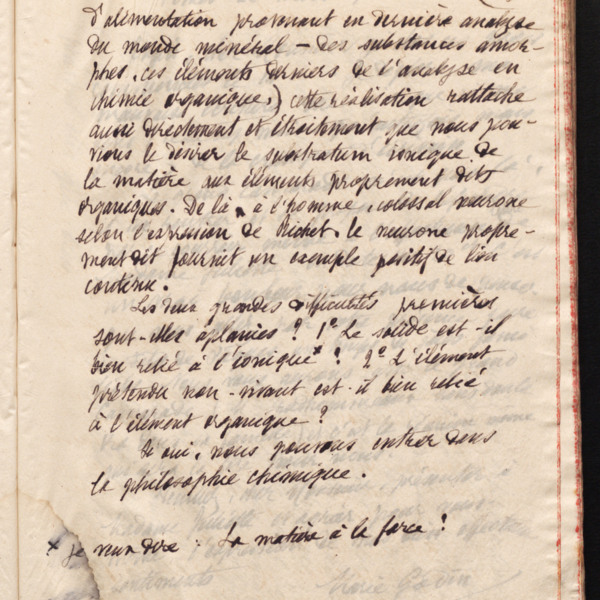 d'alimentation provenant en dernière analyse
du monde minéral — des substances amor-
phes, ces éléments derniers de l'analyse en
chimie organique,) cette réalisation rattache
aussi directement et étroitement que nous pou-
vions le désirer le substratum ionique de
la matière aux éléments proprement dits
organiques. De là, à l'homme, colossal neurone
selon l'expression de Richet, le neurone propre-
ment dit fournit un exemple positif de lien
continu.
Les deux grandes difficultés premières
sont-elles aplanies ? 1° Le solide est-il
bien relié à l'ionique* ? 2° L'élément
prétendu non-vivant est-il bien relié
à l'élément organique ?
Si oui, nous pouvons entrer dans
la philosophie chimique.
* je veux dire : La matière à la force !